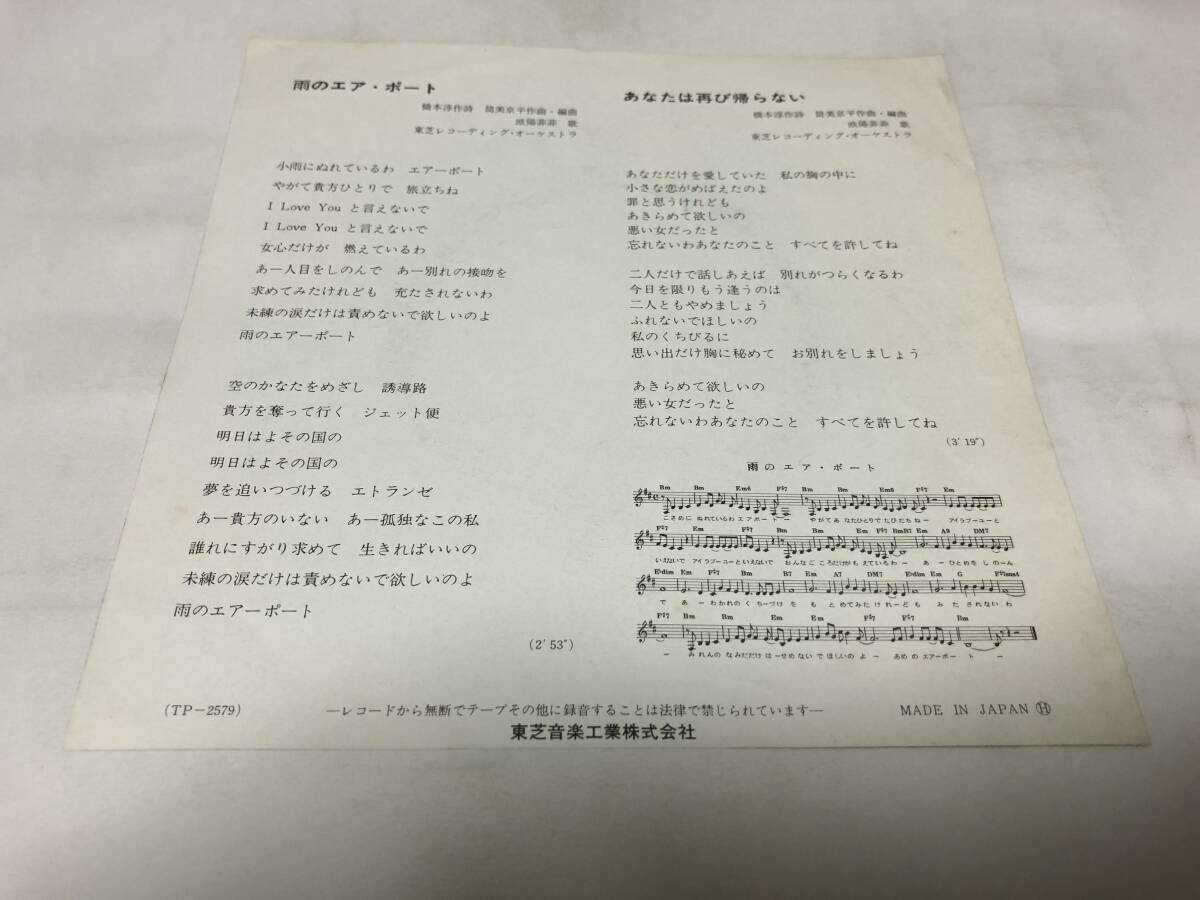 雨のエア・ポート
橋本淳作詩　筒美京平作曲・編曲
欧陽菲菲　歌
東芝レコーディング・オーケストラ
小雨にぬれているわ　エアーポート
やがて貴方ひとりで　旅立ちね
I Love You と言えないで
I Love You と言えないで
女心だけが　燃えているわ
あー人目をしのんで　あー別れの接吻を
求めてみたけれども　充たされないわ
未練の涙だけは責めないで欲しいのよ
雨のエアーポート
空のかなたをめざし　誘導路
貴方を奪って行く　ジェット便
明日はよその国の
明日はよその国の
夢を追いつづける　エトランゼ
あー貴方のいない　あー孤独なこの私
誰れにすがり求めて　生きればいいの
未練の涙だけは責めないで欲しいのよ
雨のエアーポート
(2′53″)
あなたは再び帰らない
橋本淳作詩　筒美京平作曲・編曲
欧陽菲菲　歌
東芝レコーディング・オーケストラ
あなただけを愛していた　私の胸の中に
小さな恋がめばえたのよ
罪と思うけれども
あきらめて欲しいの
悪い女だったと
忘れないわあなたのこと　すべてを許してね
二人だけで話しあえば　別れがつらくなるわ
今日を限りもう逢うのは
二人ともやめましょう
ふれないでほしいの
私のくちびるに
思い出だけ胸に秘めて　お別れをしましょう
あきらめて欲しいの
悪い女だったと
忘れないわあなたのこと　すべてを許してね
(3′19″)
雨のエア・ポート
Bm Bm Em6 F♯7 Bm Bm Em6 F♯7 Em
こさめに ぬれているわ エアーポートー やがて あなたひとりで たびだちねー アイラブーユーと
F♯7 Em F♯7 Bm Em F♯7 Bm B7 Em A9 DM7
いえないで アイラブーユーといえないで おんなごころだけが もえているわー あーひとめを しのーん
E♭dim Em F♯7 Bm B7 Em A7 DM7 E♭dim Em G F♯7sus4
で あーわかれの くちーづけ を もとめてみた けれーども みたされないわ
F♯7 Bm Bm Em Em F♯7 F♯7 Bm
ーみれんの なみだだけ はーせめないで ほしいのよー あめの エアーポートー
(TP-2579)
―レコードから無断でテープその他に録音することは法律で禁じられています―
MADE IN JAPAN Ⓗ
東芝音楽工業株式会社